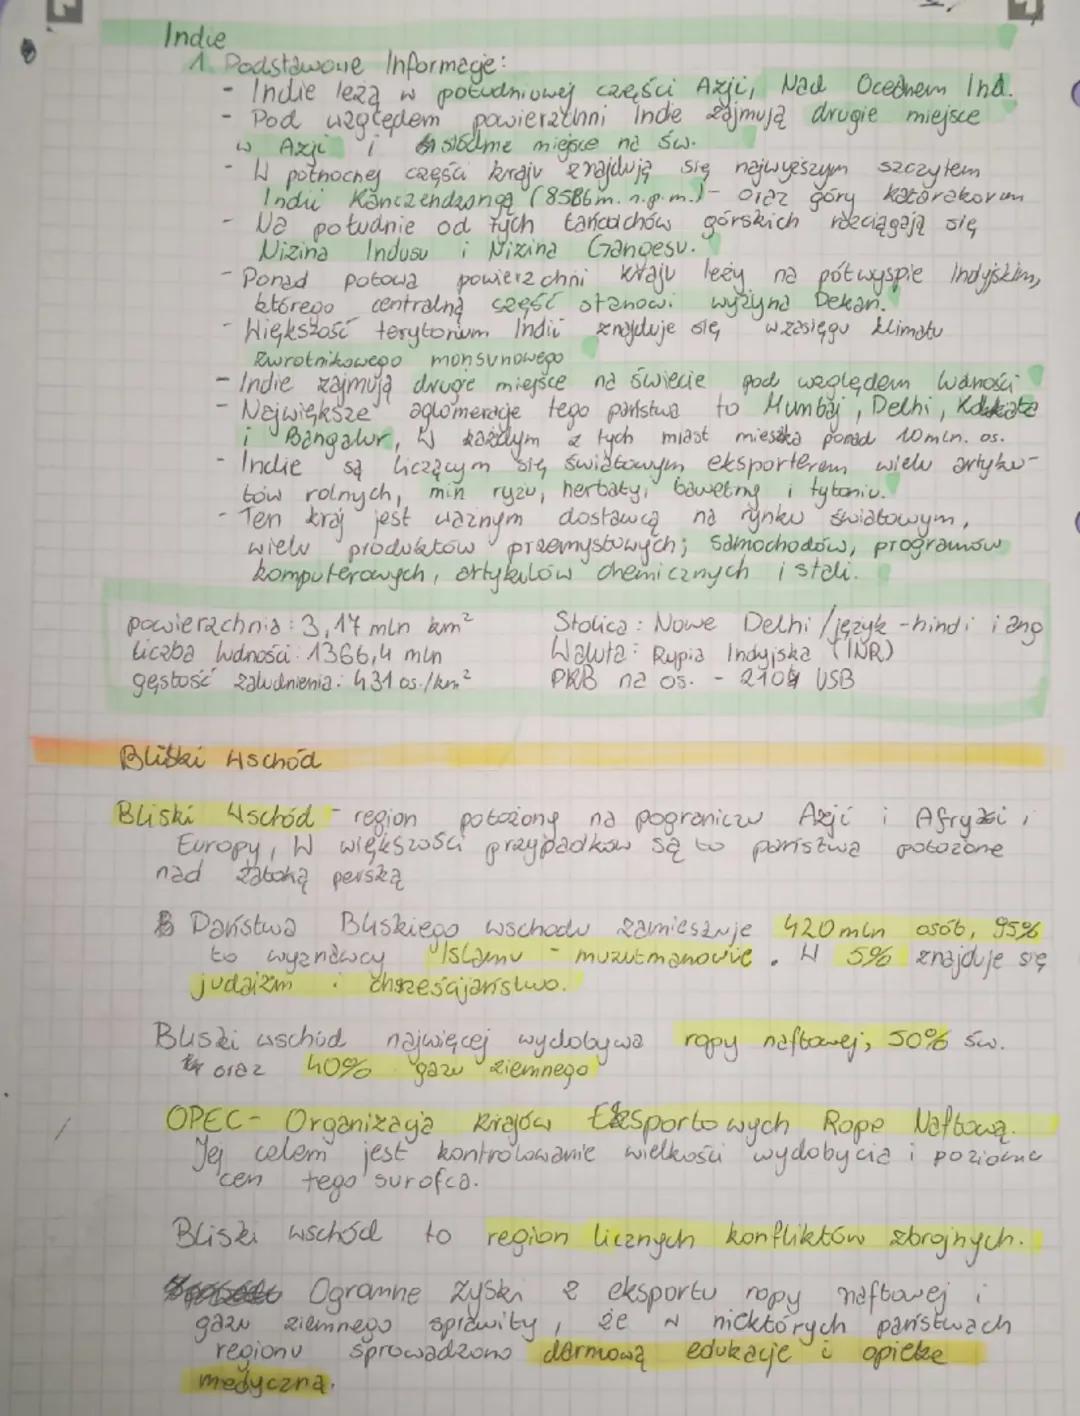 Indie
1. Podstawowe Informacje:
- Indie leżą w południowej części Azji, Nad Oceanem Ind.
- Pod względem powierzchni Indie zajmują drugie miejsce
w Azji i siódme miejsce na św.
- W północnej części kraju znajdują się najwyższym szczytem
Indii Kanczendzongą (8586m. n.p.m.) - oraz góry karakorum
- Na południe od tych łańcuchów górskich rozciągają się
Nizina Indusu i Nizina Gangesu.
- Ponad połowa powierzchni kraju leży na półwyspie Indyjskim,
którego centralną część stanowi wyżyna Dekan.
- Większość terytorium Indii znajduje się w zasięgu klimatu
zwrotnikowego monsunowego
- Indie zajmują drugie miejsce na świecie pod względem ludności
- Największe aglomeracje tego państwa to Mumbaj, Delhi, Kolkata
i Bangalur, W każdym z tych miast mieszka ponad 10mln. os.
- Indie są liczącym się światowym eksporterem wielu artyku-
łów rolnych, min ryżu, herbaty, bawełny i tytoniu.
- Ten kraj jest ważnym dostawcą na rynku światowym,
wielu produktów przemysłowych; samochodów, programów
komputerowych, artykułów chemicznych i stali.
powierzchnia: 3,17 mln km² Stolica: Nowe Delhi / język - hindi i ang
liczba ludności: 1366,4 mln Waluta: Rupia Indyjska (INR)
gęstość zaludnienia: 431 os./km² PKB na os. - 2104 USB
Bliski Wschód
Bliski Wschód - region położony na pograniczu Azji i Afryki i
Europy, W większości przypadków są to państwa położone
nad zatoką perską
Państwa Bliskiego wschodu zamieszuje 420 mln osób, 95%
to wyznawcy Islamu - muzułmanowie. W 5% znajduje się
judaizm i chrześcijaństwo.
Bliski wschód najwięcej wydobywa ropy naftowej, 50% św.
oraz 40% gazu ziemnego
OPEC - Organizacja Krajów Eksportowych Ropę Naftową.
Jej celem jest kontrolowanie wielkości wydobycia i poziomu
cen tego surofca.
Bliski wschód to region licznych konfliktów zbrojnych.
Ogromne zyski z eksportu ropy naftowej i
gazu ziemnego sprawiły, że w niektórych państwach
regionu sprowadzono darmową edukacje i opiekę
medyczną.